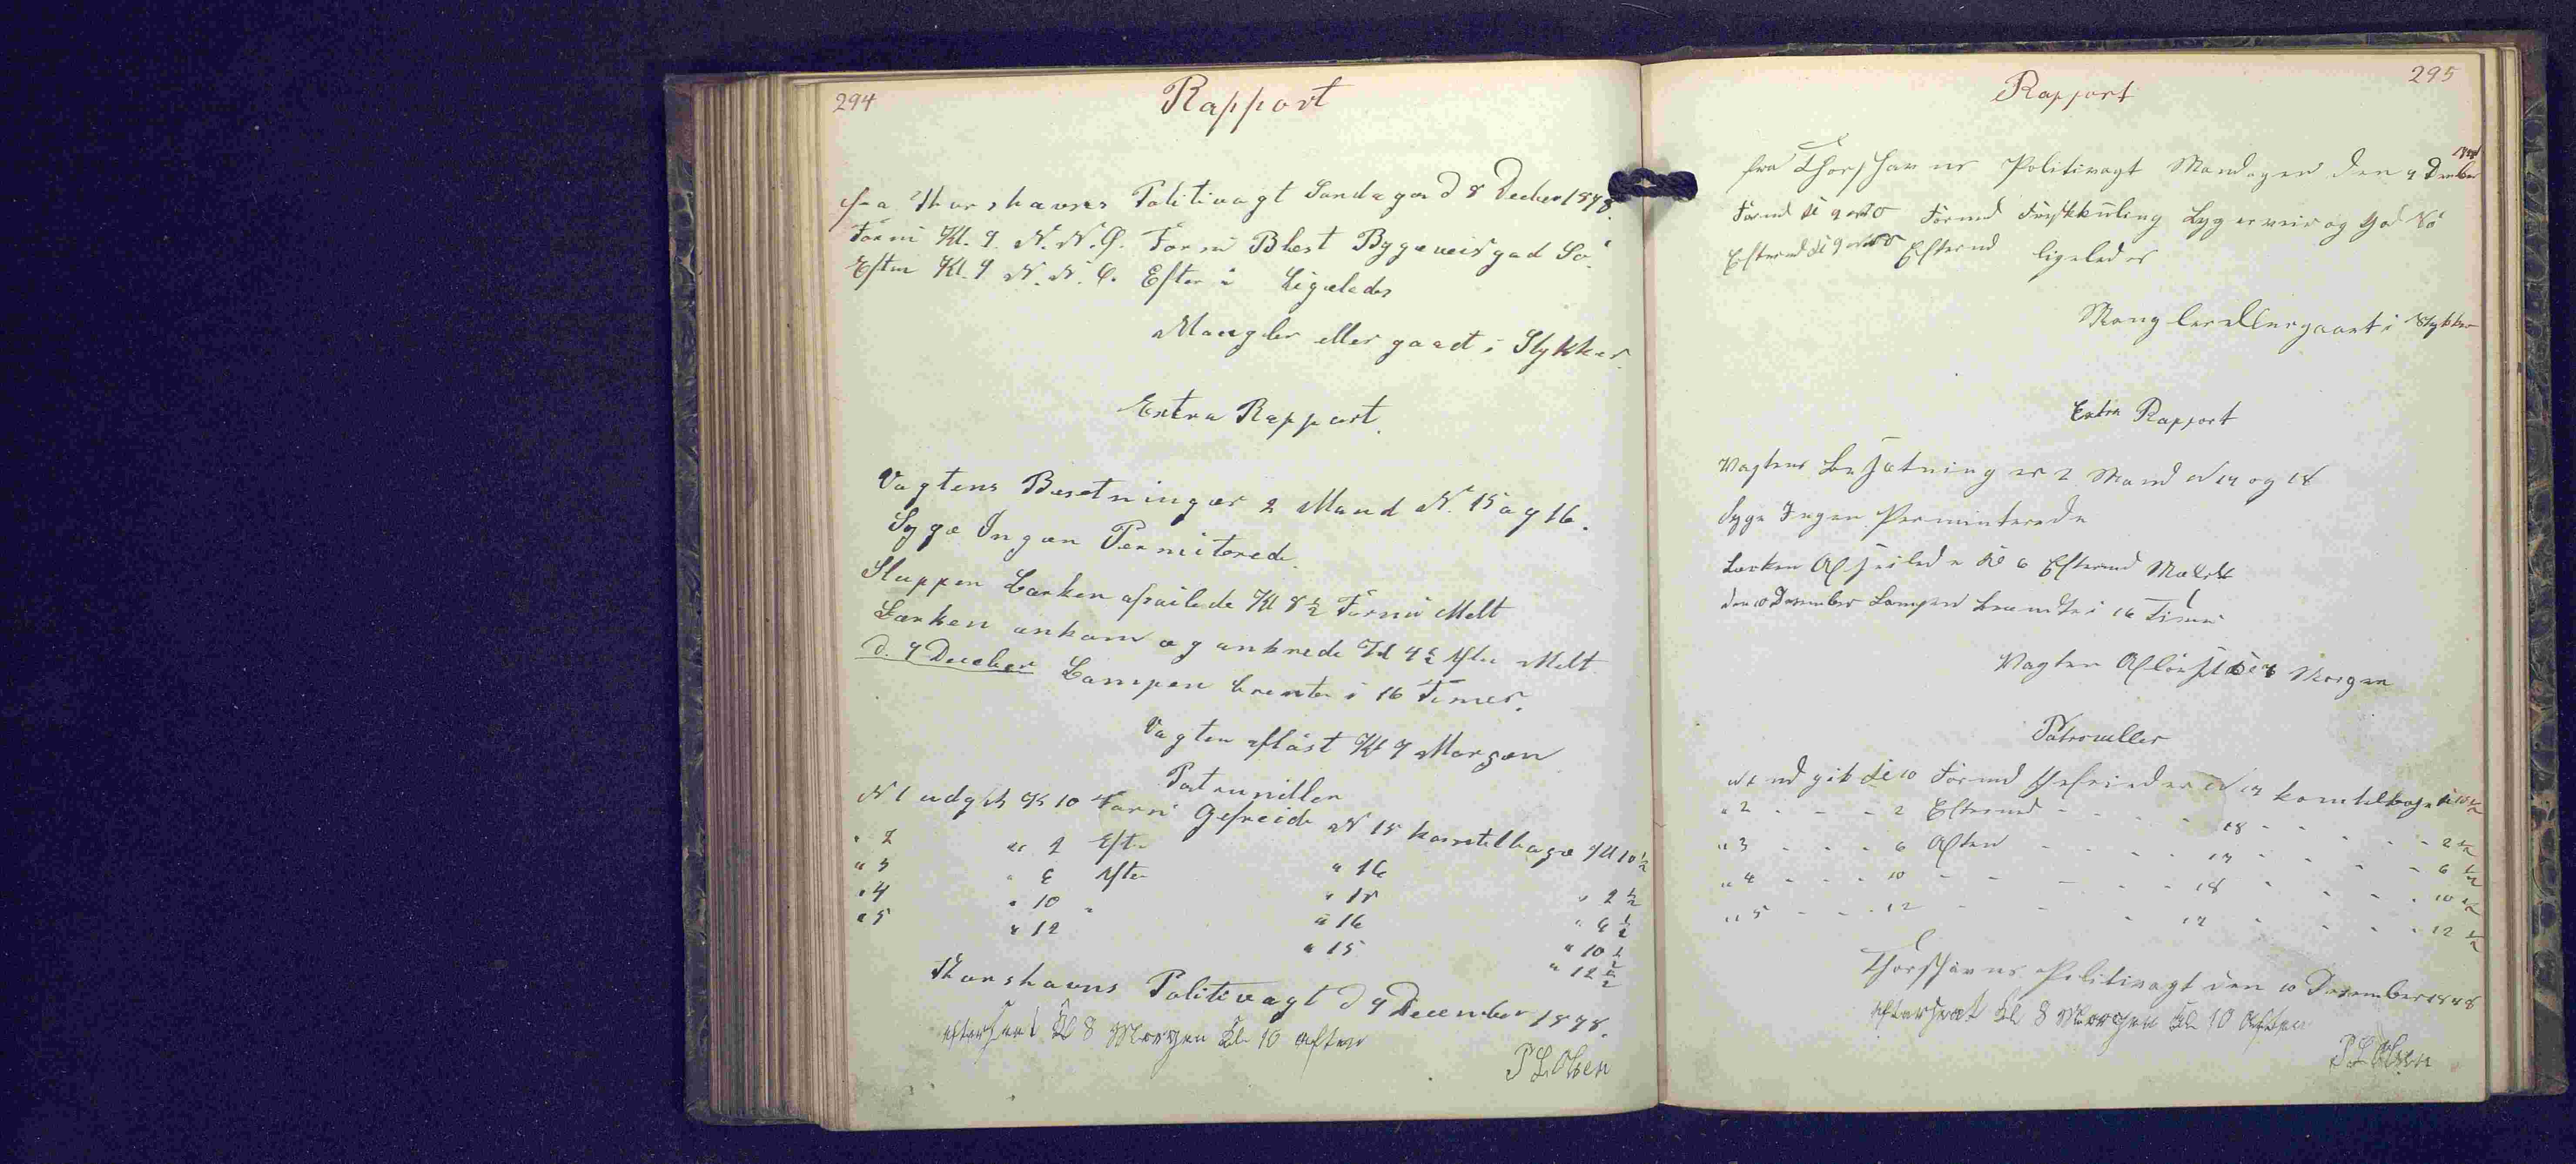 294
Rapport
fra Thorshavns Politivagt Søndagen d 8 Decber 1878.
Formi Kl. 9. N.N.O. Formi Blæst Bygeveir god Sø.
Eftm Kl. 9 N.N.O. Efter i Ligeledes
Mangler eller gaaet i Stykker.
Extra Rapport.
Vagtens Besetning er 2 Mand N. 15 og 16.
Syge Ingen Permiterede.
Sluppen Lærken afseilede Kl 8½ Formi Melt
Lærken ankom og ankrede Kl 4½ Efter Melt.
d. 9 December Lampen brente i 16 Timer.
Vagten afløst Kl 9 Morgen
Patruniller
N 1 udgik Kl 10 Formi Gefreide N 15 kom tilbage Kl 10½
" 2 " 2 Eft. " 16 " 2½
" 3 " 6 Aften " 15 " 6½
" 4 " 10 " " 16 " 10½
" 5 " 12 " 15 " 12½
Thorshavns Politivagt d 9 December 1878.
efterseet Kl 8 Morgen Kl 10 Aften
P L Olsen
295
Rapport
fra Thorshavns Politivagt Mandagen den 9 Decmber 1878
Formd Kl 9 Formd Friskkuling Bygerveir og God Sø
Eftermd Kl 9 Eftermd ligeledes
Mangler eller gaaet i Stykker
Extra Rapport
Vagtens Besætning er 2 Mand N 17 og 18
Syge Ingen Perminterede
Lærken Afseilede Kl 6 Eftermd Mældt
den 10 Desember Lampen brændte i 16 Timer
Vagten Afløst Kl 9 Morgen
Patrouller
N 1 udgik Kl 10 Formd Gefreider N 17 kom tilbage Kl 10½
" 2 - - - 2 Eftermd - - - 18 - - - 2½
" 3 - - - 6 Aften - - - 17 - - - 6½
" 4 - - - 10 - - - 18 - - - 10½
" 5 - - - 12 - - - 17 - - - 12½
Thorshavns Politivagt den 10 Desember 1878
efterseet Kl 8 Morgen Kl 10 Aften
P L Olsen